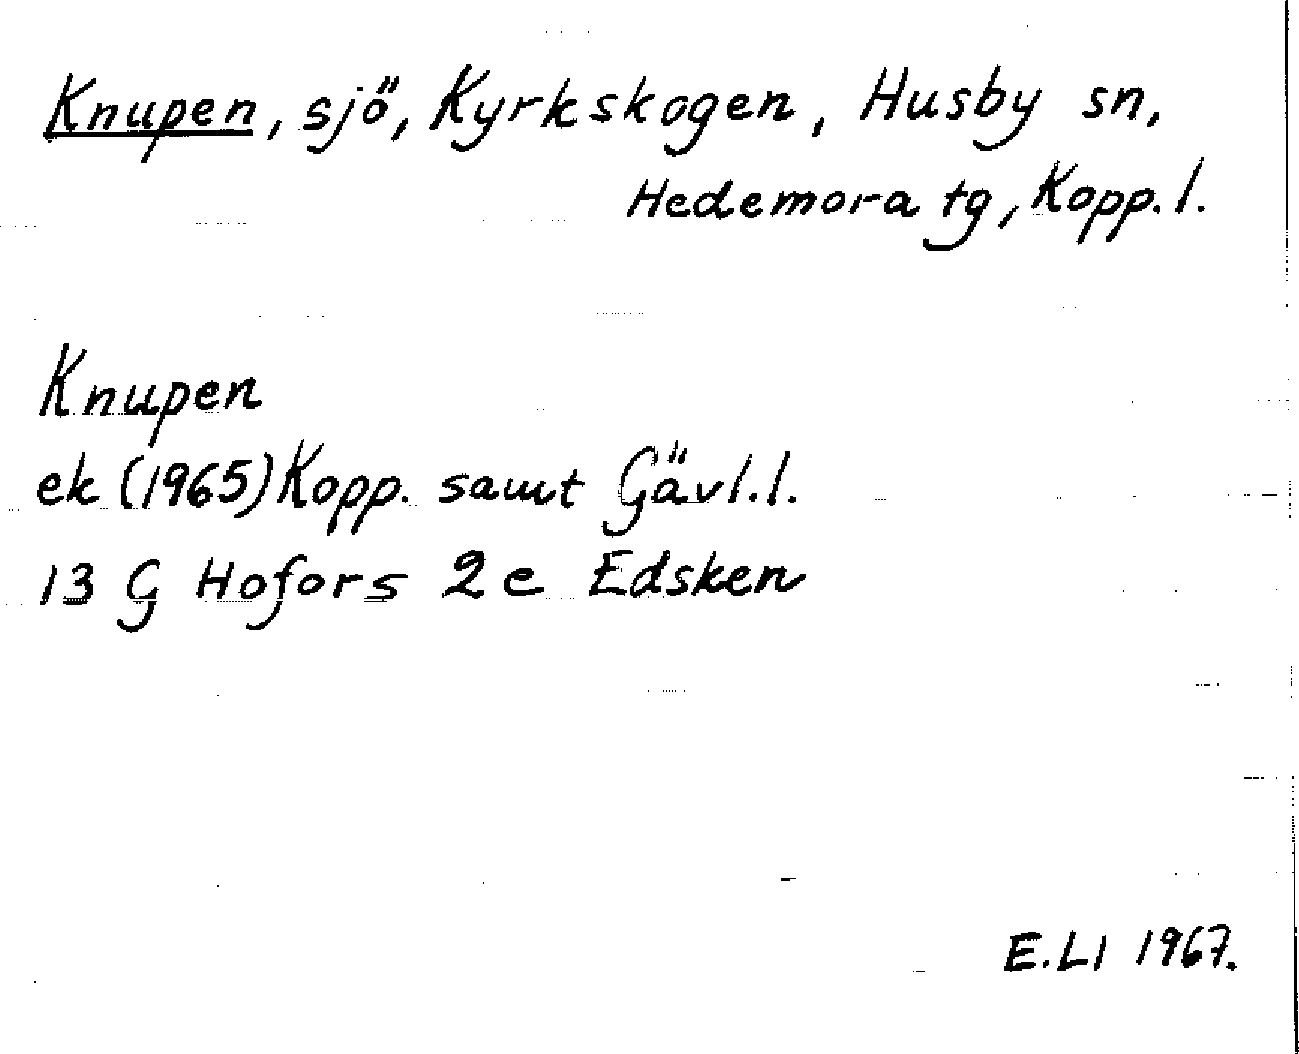 Knupen, sjö, Kyrkskogen, Husby sn,
Hedemora tg, Kopp. l.
Knupen
ek (1965) Kopp. samt Gävl.l.
13 G Hofors 2 e Edsken
E.Ll 1967.